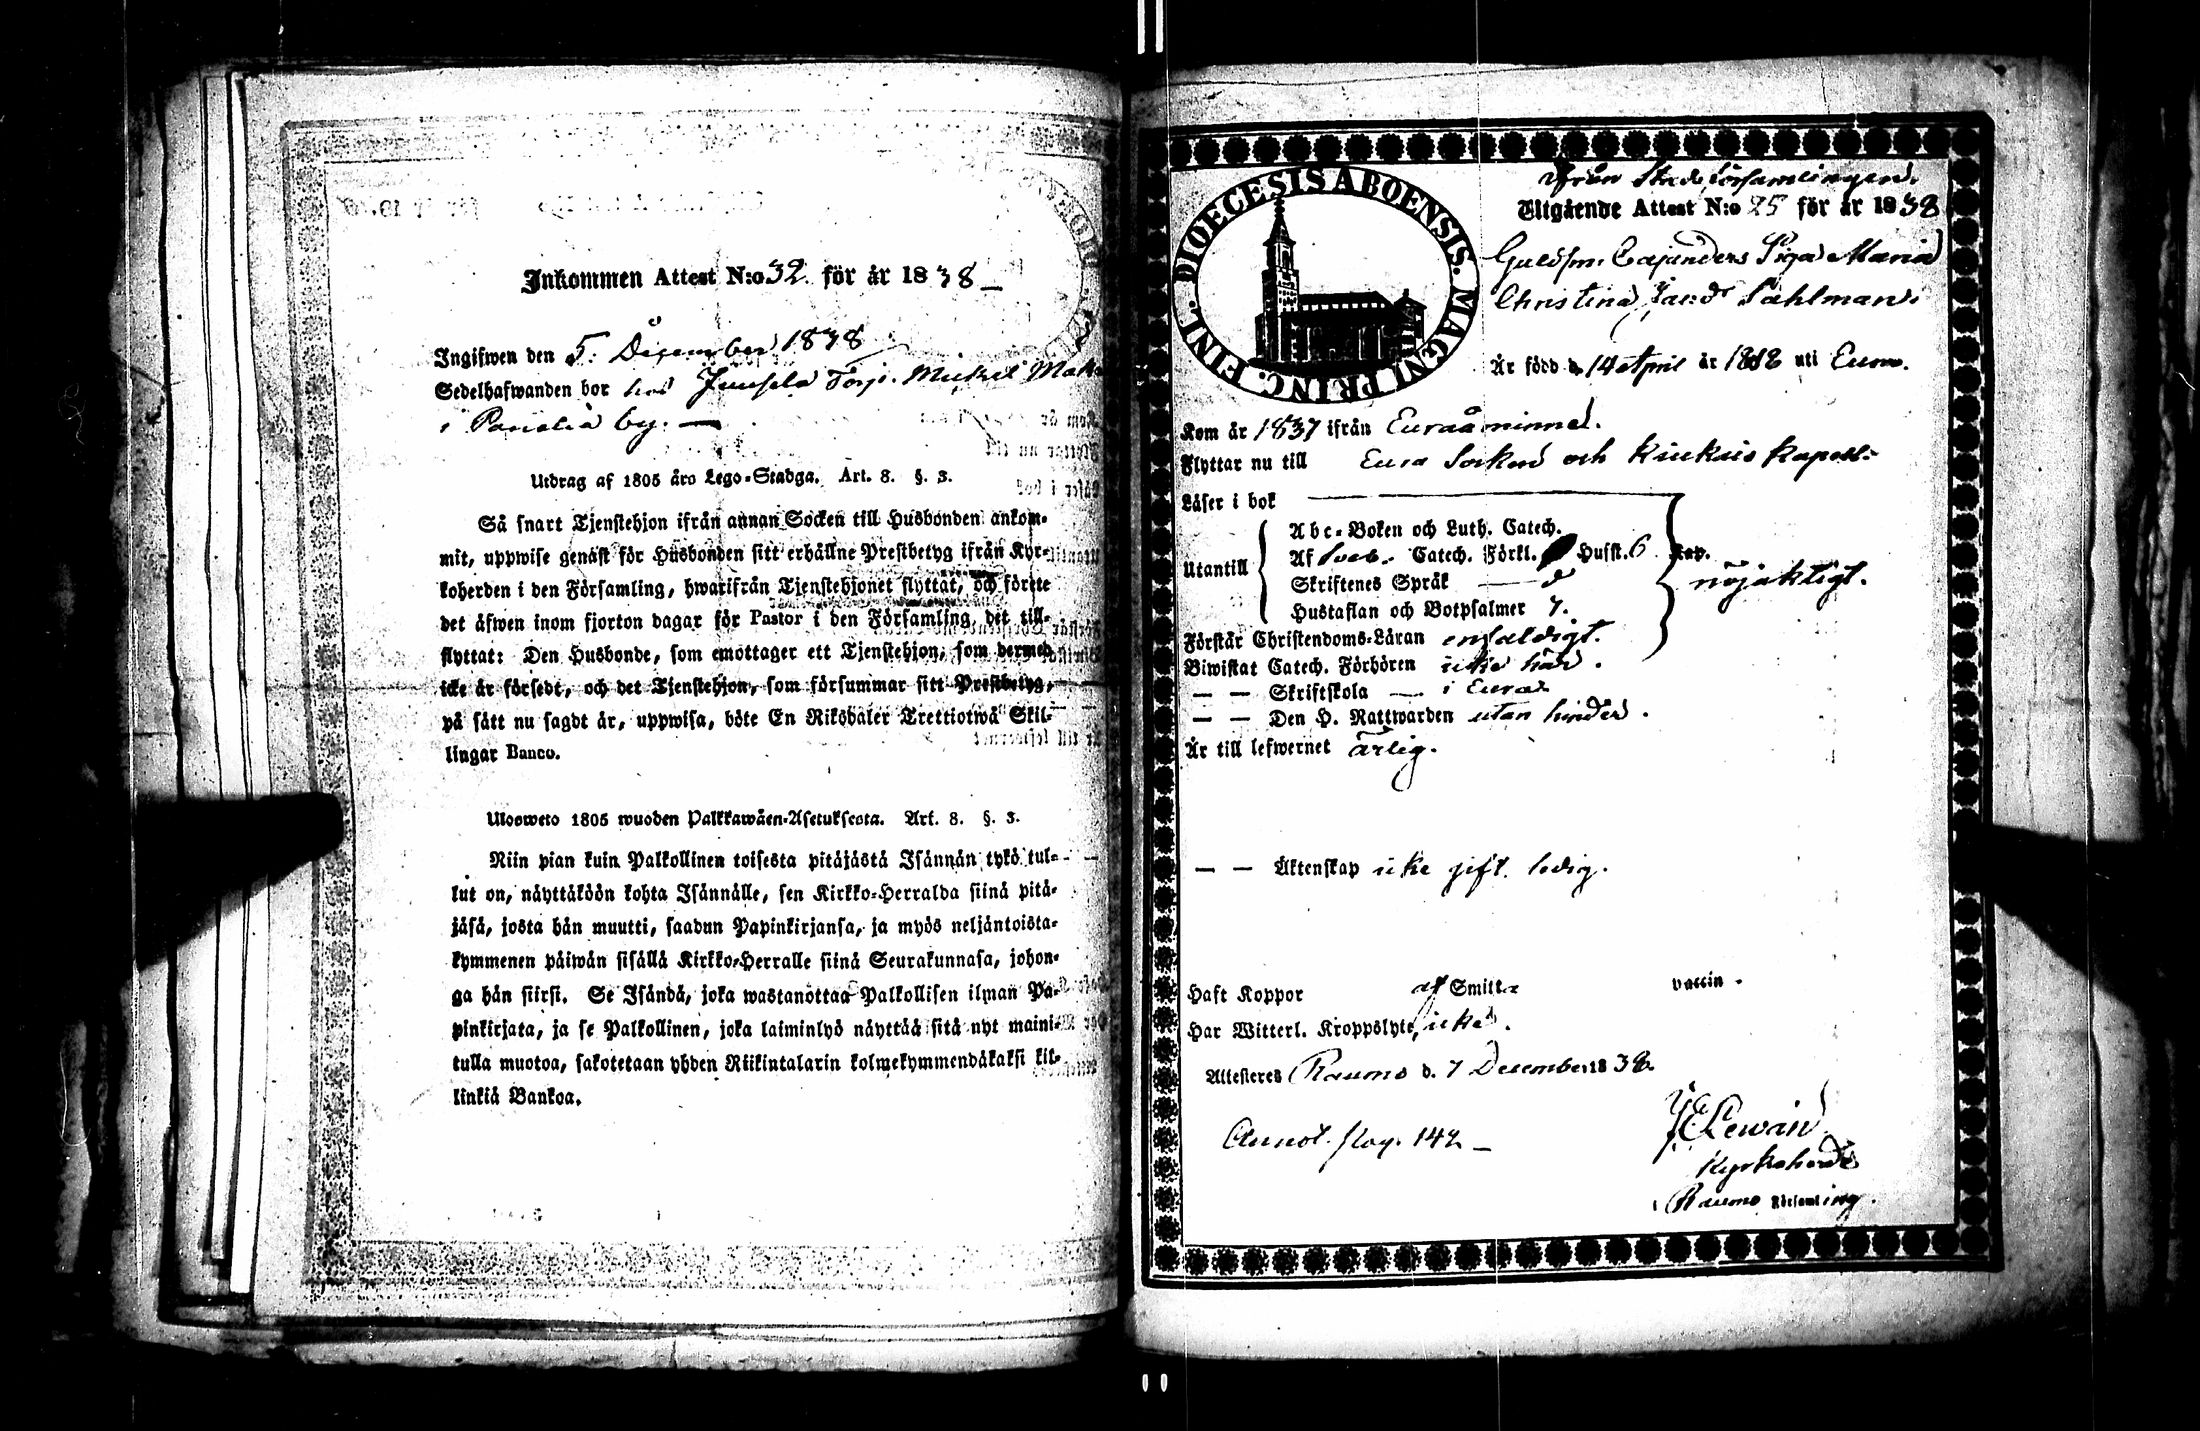 Inkommen Attest N:o 32. för år 1838
Ingifwen den 5. December 1838
Sedelhafwanden bor hos Juusela Torp. Mickel
i Panelia by.
Utdrag af 1805 års Lego-Stadga. Art. 8. §. 3.
Så snart Tjenstehjon ifrån annan Socken till Husbonden ankom-
mit, uppwise genast för Husbonden sitt erhållne Prestbetyg ifrån Kyr-
koherden i den Församling, hwarifrån Tjenstehjonet flyttat, och förete
det äfwen inom fjorton dagar för Pastor i den Församling, det till-
flyttat: Den Husbonde, som emottager ett Tjenstehjon, som dermed
icke är försedt, och det Tjenstehjon, som försummar sitt Prestbetyg,
på sätt nu sagdt är, uppwisa, böte En Riksdaler Trettiotwå Skil-
lingar Banco.
Uloswetö 1805 wuoden Palkkawäen-Asetuksesta. Art. 8. §. 3.
Niin pian kuin Palkollinen toisesta pitäjästä Isännän tykö tul-
lut on, näyttäköön kohta Isännälle, sen Kirkko-Herralda siinä pitä-
jäsä, josta hän muutti, saadun Papinkirjansa, ja myös neljäntoista-
kymmenen päiwän sisällä Kirkko-Herralle siinä Seurakunnasa, johon-
ga hän siirsi. Se Isändä, joka wastanottaa Palkollisen ilman Pa-
pinkirjata, ja se Palkollinen, joka laiminlyö näyttää sitä nyt maini-
tulla muotoa, sakotetaan yhden Riikintalarin kolmekymmendäkaksi kil-
linkiä Bankoa.
FINL. DIOECESIS ABOENSIS. MAGNI PRINC.
ifrån Stads församlingen.
Utgående Attest N:o 25 för år 1838
Guldsm. Cajanders Piga Maria
Christina Sahlman
Är född d. 14 April år 1818 uti Eura.
Kom år 1837 ifrån Euraåminne.
Flyttar nu till Eura Socken och Kiukais Kapell.
Läser i bok
Utantill
Abc-Boken och Luth. Catech.
Af Sveb. Catech. Förkl. Husst. 6 Kap.
Skriftenes Språk
Hustaflan och Botpsalmer 7.
nöjaktigt.
Förstår Christendoms-Läran enfaldigt.
Biwistat Catech. Förhören icke här.
— — Skriftskola — i Eura
— — Den H. Nattwarden utan hinder.
Är till lefwernet ärlig.
— — Äktenskap icke gift. ledig.
Haft Koppor af Smitta vaccin.
Har Witterl. Kroppslyte, icke.
Attesteres Raumo d. 7 December 1838.
Annot. pag. 142
Lewan
Kyrkoherde
Raumo Församling.